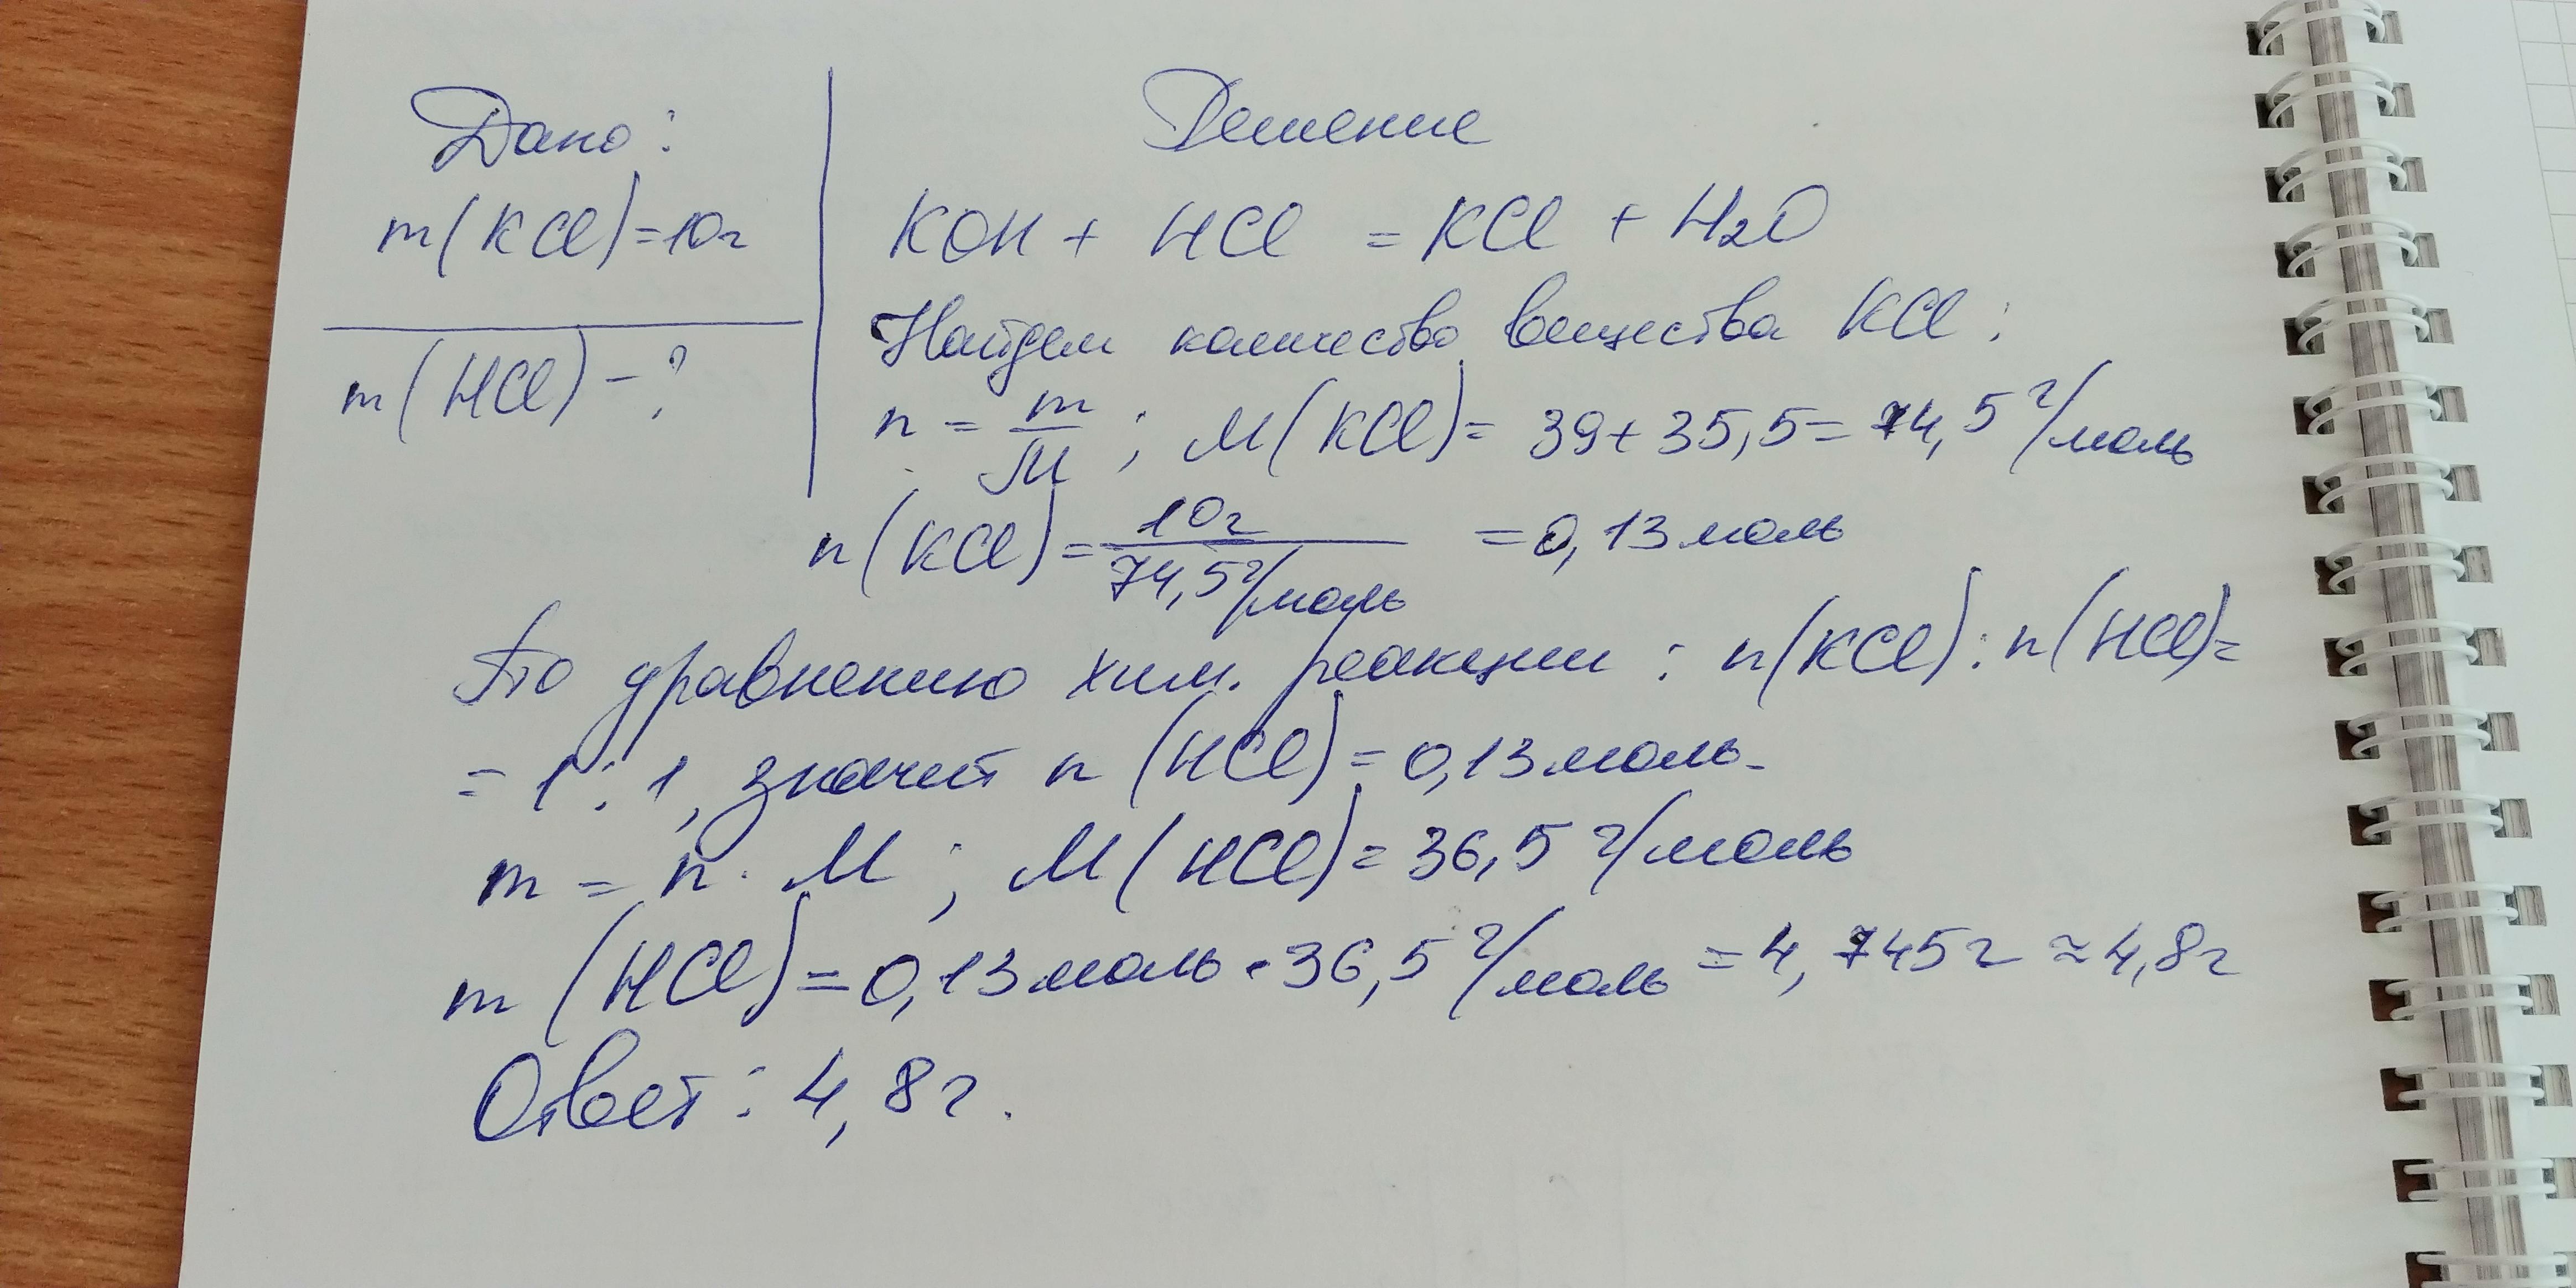 Дано:
m(KCl)=10г
m(HCl)-?
Решение
KOH + HCl = KCl + H₂O
Найдем количество вещества KCl:
n = m/M ; M(KCl)= 39+35,5= 74,5 г/моль
n(KCl)= 10г/74,5 г/моль = 0,13 моль
По уравнению хим. реакции : n(KCl):n(HCl)=
= 1:1, значит n (HCl)= 0,13 моль.
m = n · M ; M(HCl)= 36,5 г/моль
m (HCl)= 0,13 моль · 36,5 г/моль = 4,745г ≈ 4,8г
Ответ: 4,8г.